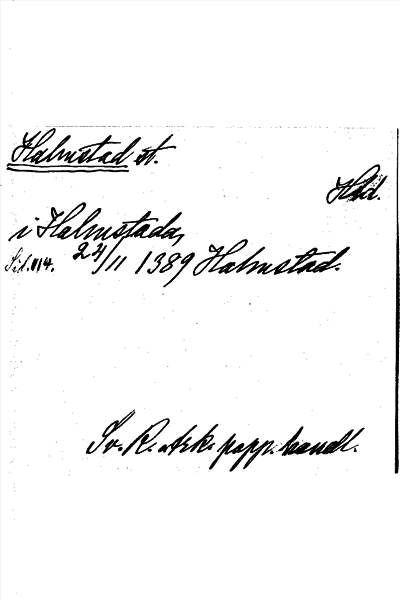 Halmstad st.
Hld.
i Halmstada,
Sid. 114. 24/11 1389 Halmstad.
Sv. R. ark. papp. handl.